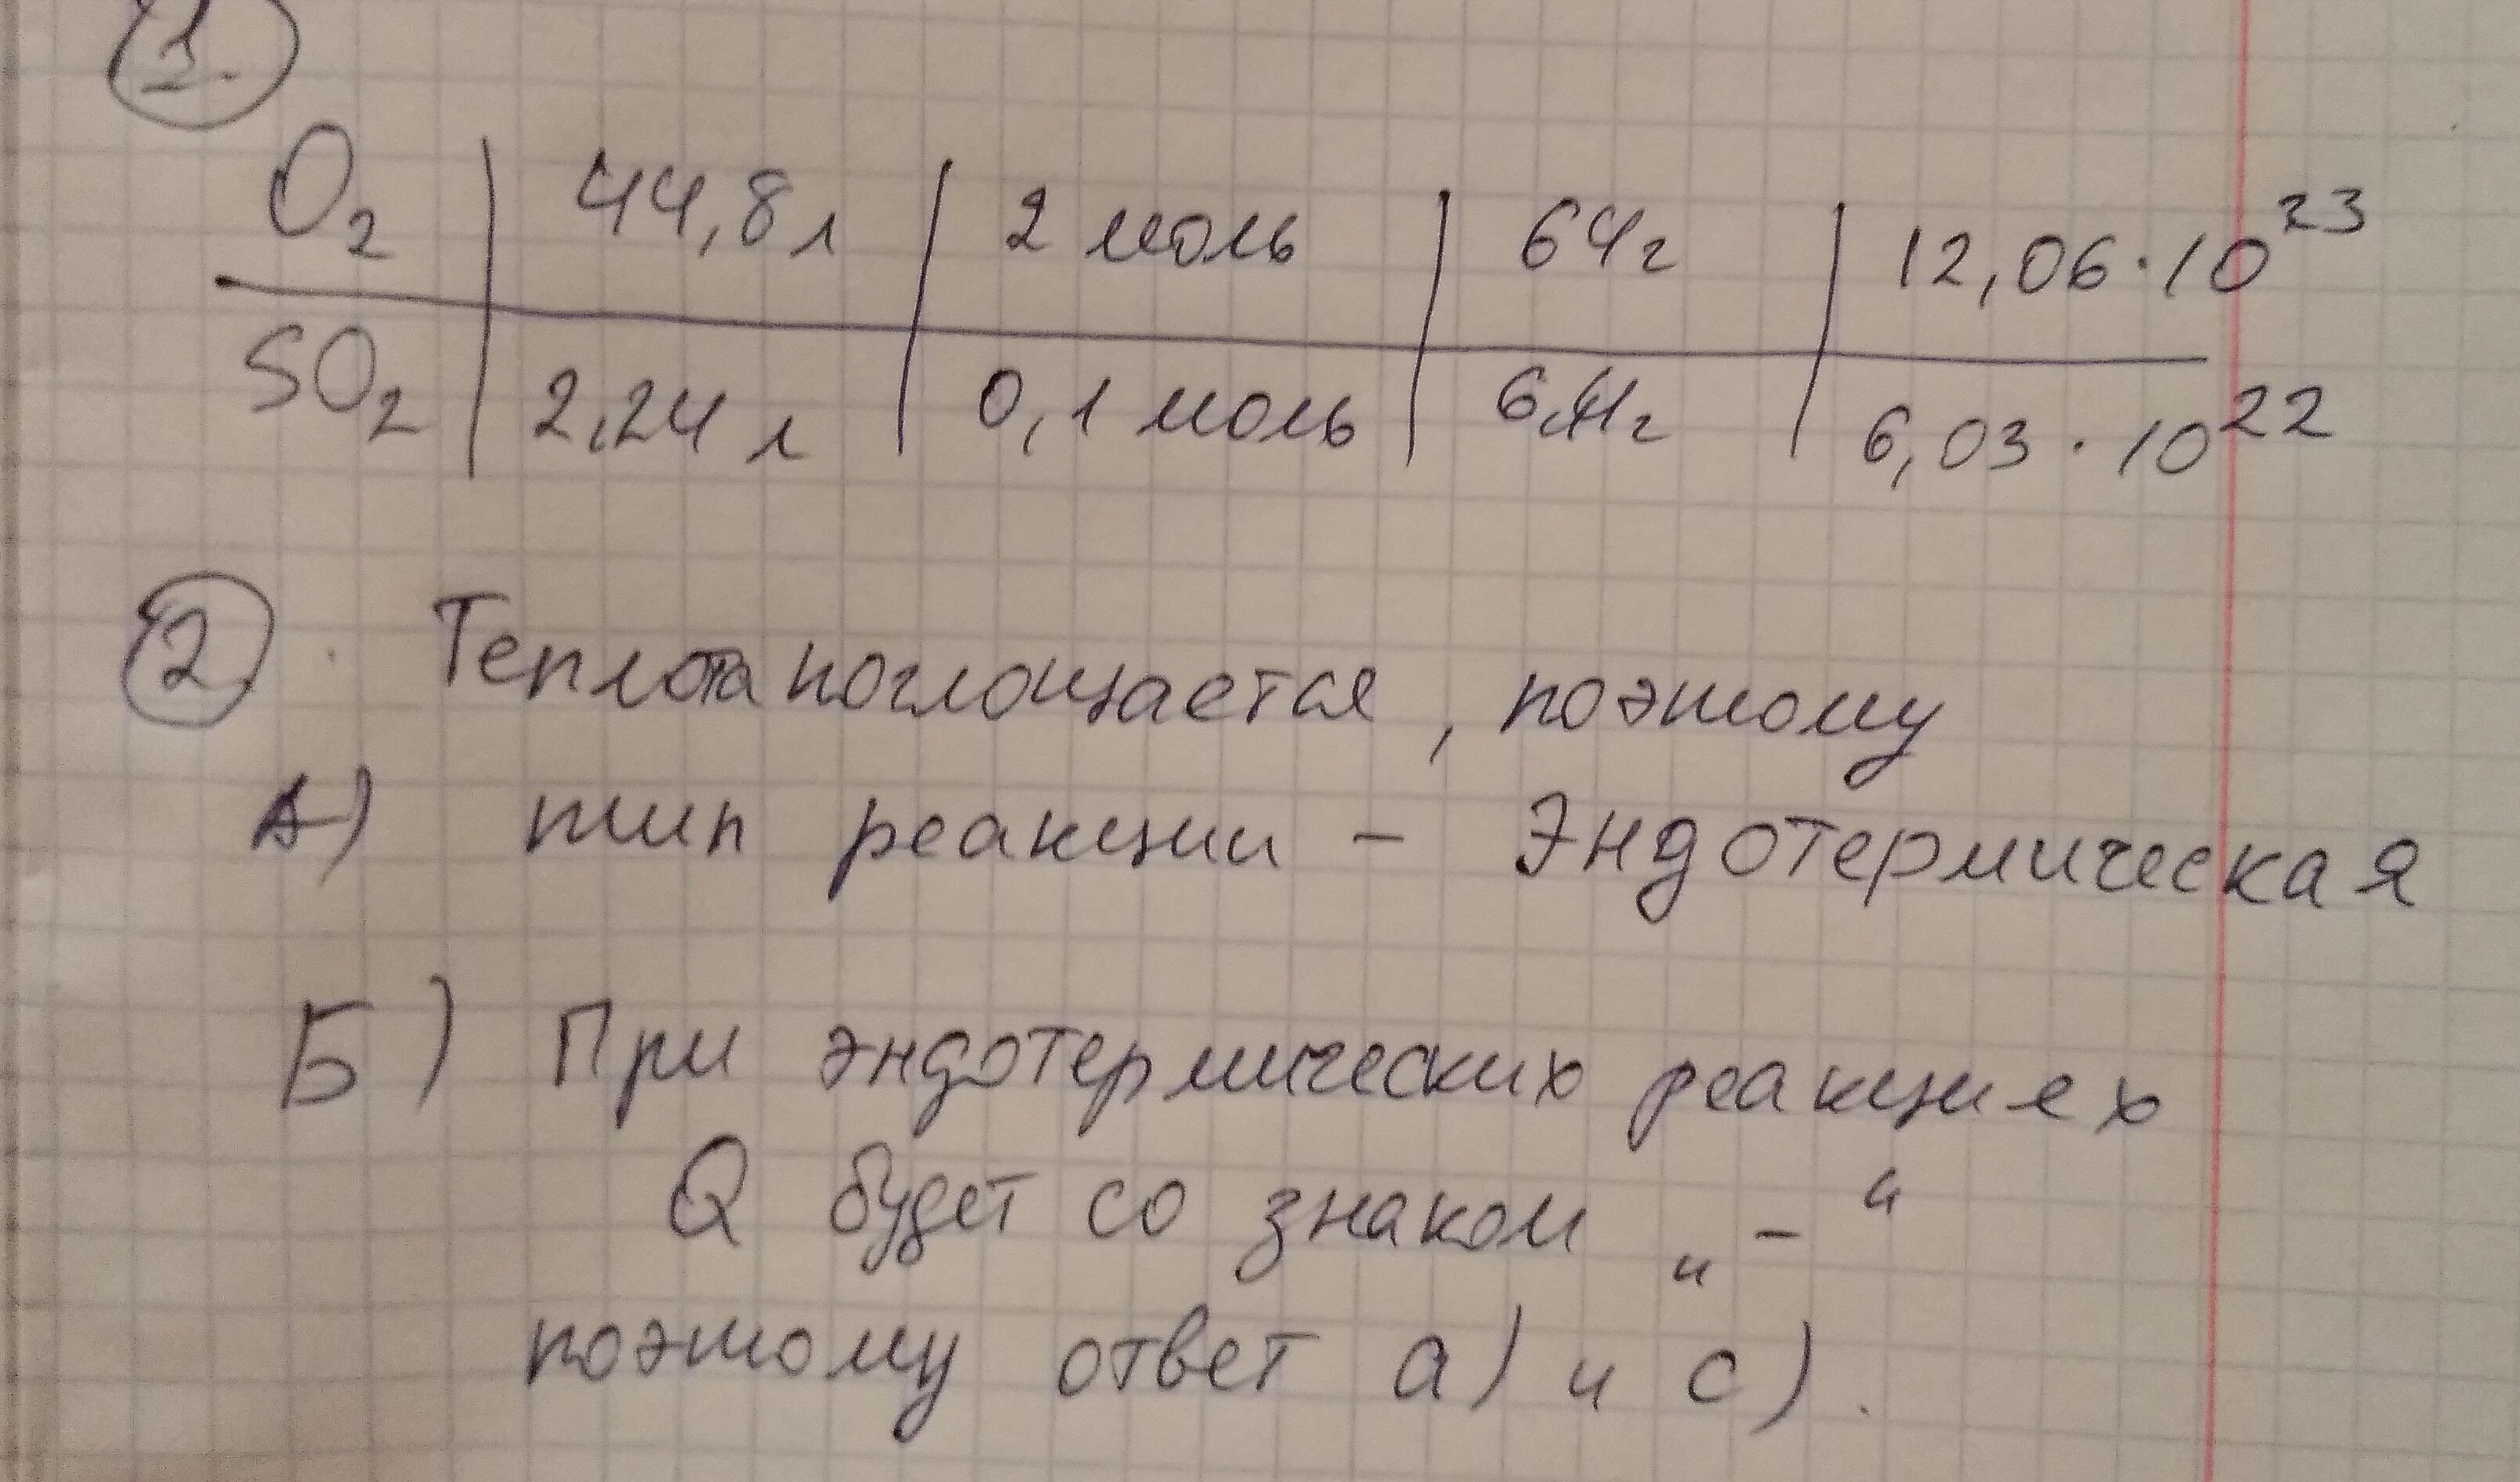 1.
O₂ | 44,8 л | 2 моль | 64 г | 12,06·10²³
SO₂ | 2,24 л | 0,1 моль | 6,4 г | 6,03·10²²
2 Теплота поглощается, поэтому
А) тип реакции – Эндотермическая
Б) При эндотермических реакциях
Q будет со знаком „–“
поэтому ответ а) и с).